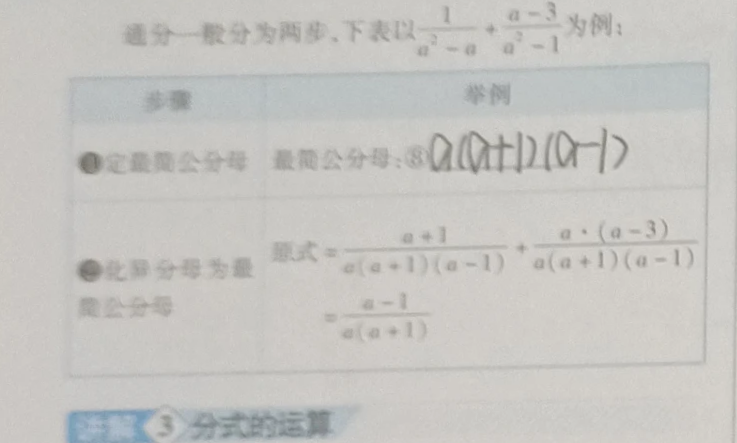 通分一般分为两步,下表以\frac{1}{a^2-a}+\frac{a-3}{a^2-1}为例:
步骤 举例
❶定最简公分母 最简公分母:⑧a(a+1)(a-1)
❷化异分母为最简公分母 原式=\frac{a+1}{a(a+1)(a-1)}+\frac{a·(a-3)}{a(a+1)(a-1)}
=\frac{a-1}{a(a+1)}
3 分式的运算